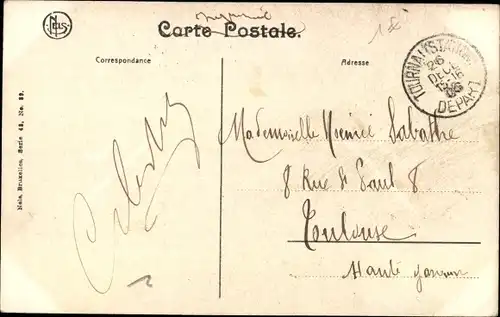 Nels
Carte Postale.
Correspondance
Adresse
TOURNAI (STATION)
26
DECE
15-16
06
DEPART
Nels, Bruxelles, Serie 42, No. 89.
Mademoiselle Sabathe
8 Rue St Paul 8
Toulouse
Haute Garonne